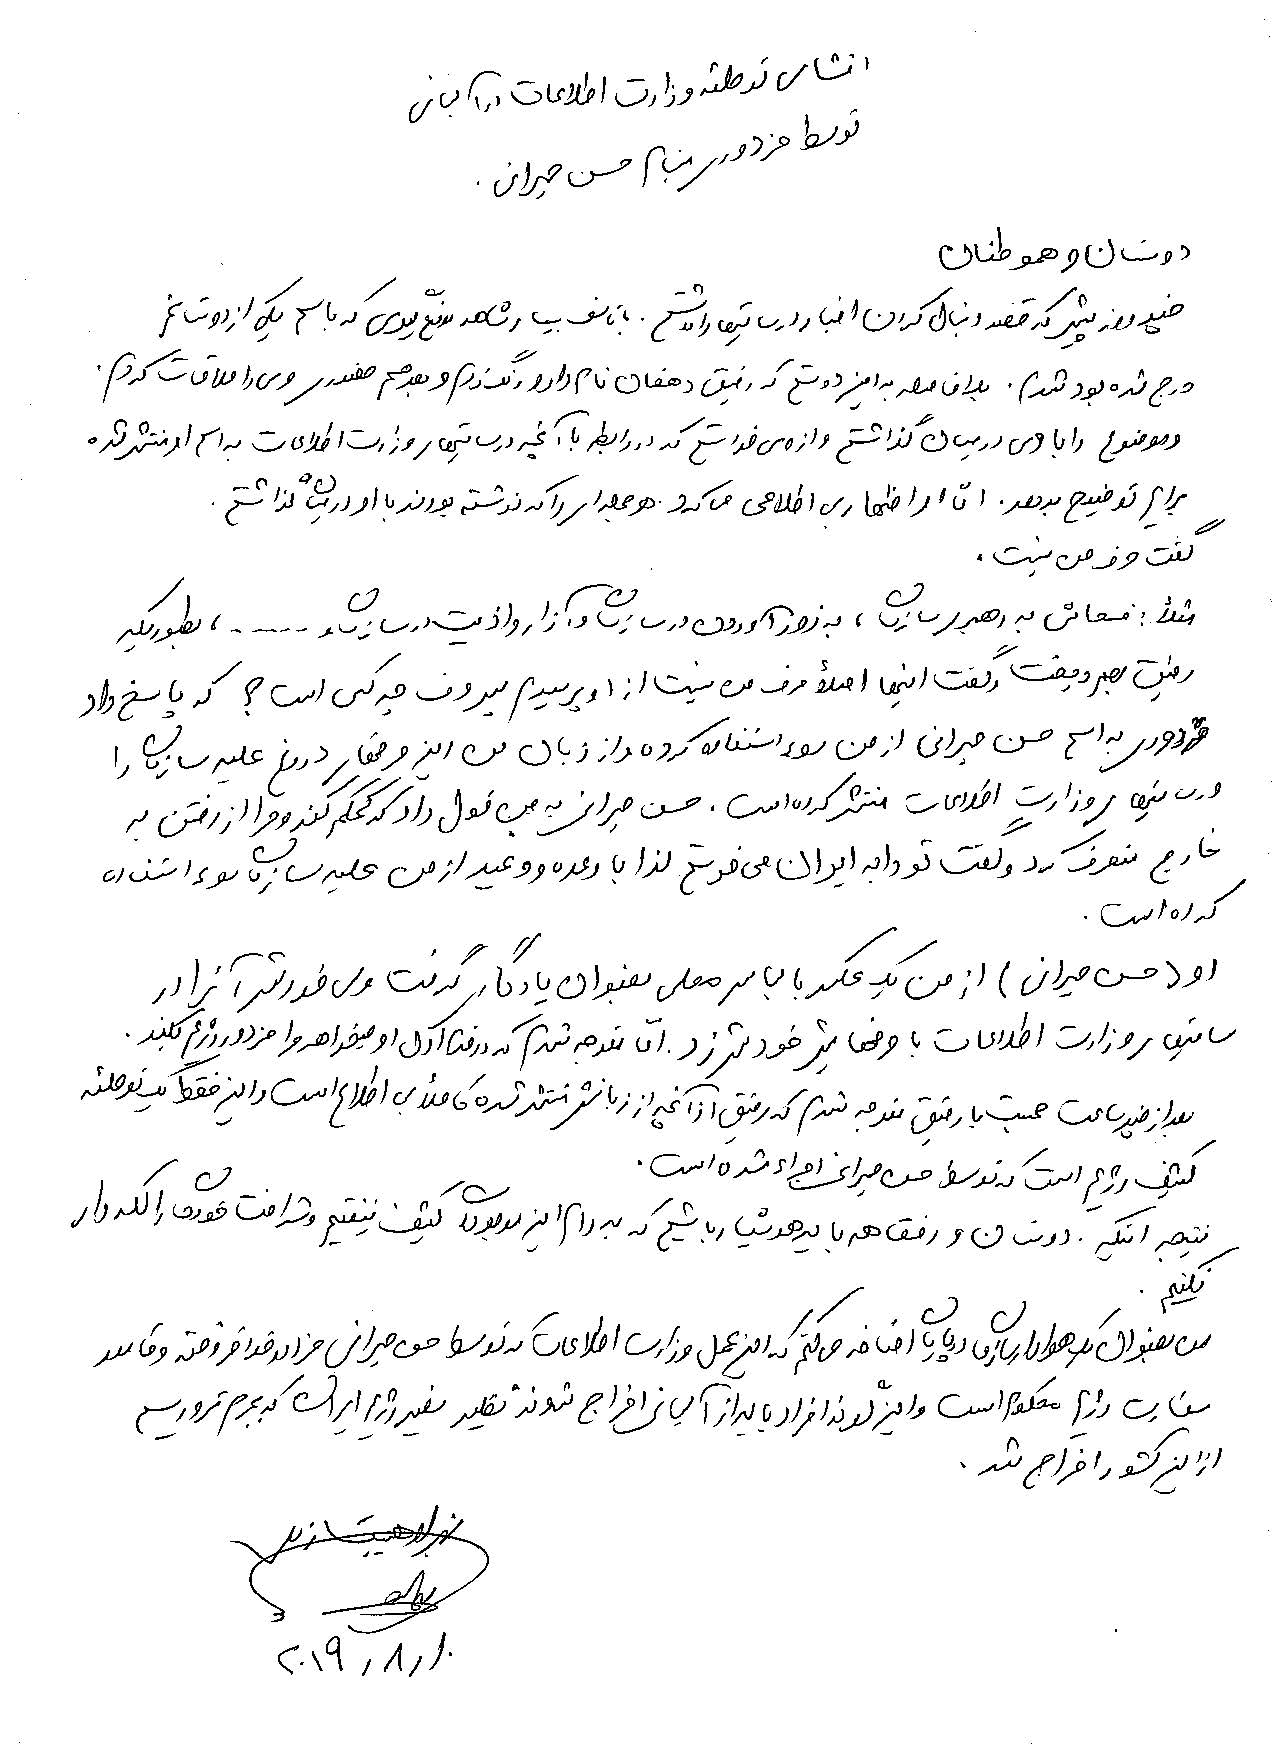 افشای توطئه وزارت اطلاعات در آلبانی
توسط مزدوری بنام حسن حیرانی .
دوستان و هموطنان
چند روز پیش که قصد دنبال کردن اخبار در سایتها را داشتم . با تاسف بسیار شاهد موضوعی بودم که با اسم یکی از دوستانم
درج شده بود شدم . بلافاصله به این دوستم که رفیق دهقان نام دارد زنگ زدم و بعد هم حضوری وی را ملاقات کردم .
و موضوع را با وی در میان گذاشتم و از وی خواستم که در رابطه با آنچه در سایتهای وزارت اطلاعات به اسم او منتشر شده
برایم توضیح بدهد . اما او اظهار بی اطلاعی می کرد . هر جمله ای را که نوشته بودند با او در میان گذاشتم .
گفت حرف من نیست .
مثلاً : فحاشی به رهبری سازمان ، به زور آوردن در سازمان و آزار و اذیت در سازمان و ..... ، بطوریکه
رفیق بهم ریخت و گفت اینها اصلاً حرف من نیست از او پرسیدم پس حرف چه کسی است ؟ که پاسخ داد
مزدوری به اسم حسن حیرانی از من سوء استفاده کرده و از زبان من این حرفهای دروغ علیه سازمان را
در سایتهای وزارت اطلاعات منتشر کرده است . حسن حیرانی به من قول داد که کمکم کند و مرا از رفتن به
خارج منصرف کرد و گفت تو را به ایران می فرستم لذا با وعده و وعید از من علیه سازمان سوء استفاده
کرده است .
او ( حسن حیرانی ) از من یک عکس با لباس محلی بعنوان یادگار گرفت ولی خودش آنرا در
سایتهای وزارت اطلاعات با حرفهای خودش زد . اما متوجه شدم که در قدم اول او میخواهد مرا مزدور رژیم بکند .
بعد از چند ساعت صحبت با رفیق متوجه شدم که رفیق از آنچه از زبانش منتشر شده کاملاً بی اطلاع است و این فقط یک توطئه
کثیف رژیم است که توسط حسن حیرانی اجرا شده است .
نتیجه اینکه . دوستان و رفقا همه باید هوشیار باشیم که به دام این مزدوران کثیف نیفتیم و شرافت خودمان را لکه دار
نکنیم .
من بعنوان یک هوادار سازمان در پایان اضافه می کنم که این عمل وزارت اطلاعات که توسط حسن حیرانی مزدور خود فروخته و قاصد
سفارت رژیم محکوم است و اینگونه افراد باید از آلبانی اخراج شوند مثل سفیر رژیم ایران که بجرم تروریسم
از این کشور اخراج شد .
۲۰۱۹/۸/۱۰